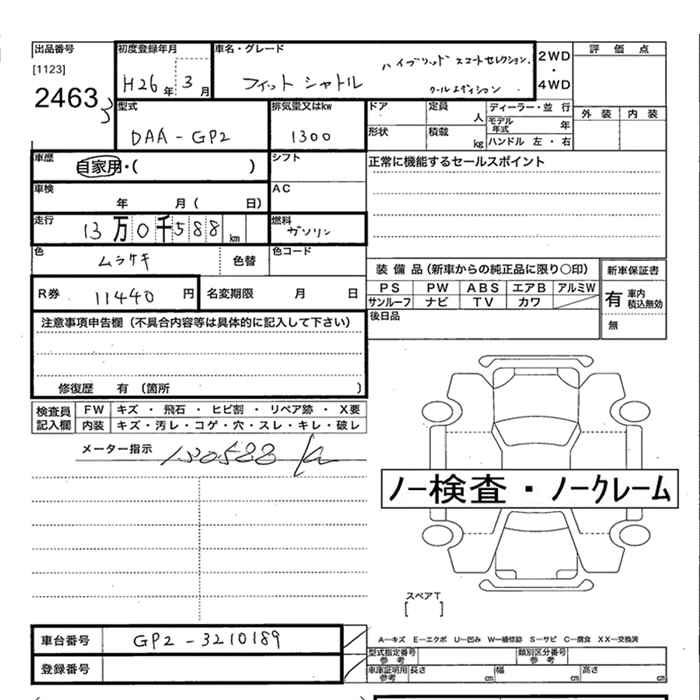 出品番号 初度登録年月 車名・グレード ハイブリッド スマートセレクション. 2WD ・ 4WD 評価点
[1123] H26年 3月 フィットシャトル クールエディション. 外装 内装
2463
型式 排気量又はkw ドア 定員 人 ディーラー・並行
DAA-GP2 1300 形状 積載 kg モデル年式 年
ハンドル 左・右
車歴 自家用・( ) シフト 正常に機能するセールスポイント
車検 年 月( 日) AC
走行 13万0千588km 燃料 ガソリン
色 ムラサキ 色替 色コード
装備品(新車からの純正品に限り○印) 新車保証書
R券 11440円 名変期限 月 日 PS PW ABS エアB アルミW 有 車内積込無効
サンルーフ ナビ TV カワ
注意事項申告欄(不具合内容等は具体的に記入して下さい) 後日品 無
修復歴 有(箇所 )
検査員記入欄 FW キズ・飛石・ヒビ割・リペア跡・X要
内装 キズ・汚レ・コゲ・穴・スレ・キレ・破レ
メーター指示 130588 K
ノー検査・ノークレーム
スペアT
[ ]
車台番号 GP2-3210189 A－キズ E－エクボ U－凹み W－補修跡 S－サビ C－腐食 XX－交換済
登録番号 型式指定番号 参考 類別区分番号 参考
車庫証明用 参考 長さ cm 幅 cm 高さ cm